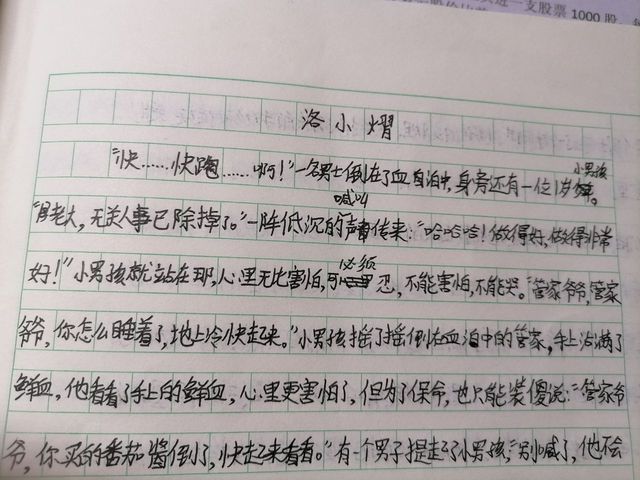 进一支股票 1000 股,
洛小熠
“快……快跑……啊!”一名男士倒在了血泊中,身旁还有一位1岁小男孩。
“月老大,无关人事已除掉了。”一阵低沉的喊叫声传来:“哈哈哈!做得好,做得非常
好!”小男孩就站在那,心里无比害怕,必须忍,不能害怕,不能哭。“管家爷爷,管家
爷爷,你怎么睡着了,地上冷快起来。”小男孩摇了摇倒在血泊中的管家,手上沾满了
鲜血,他看看了手上的鲜血,心里更害怕了,但为了保命,也只能装傻说:“管家爷
爷,你买的番茄酱倒了,快起来看看。”有一个男子提走了小男孩,“别喊了,他不会